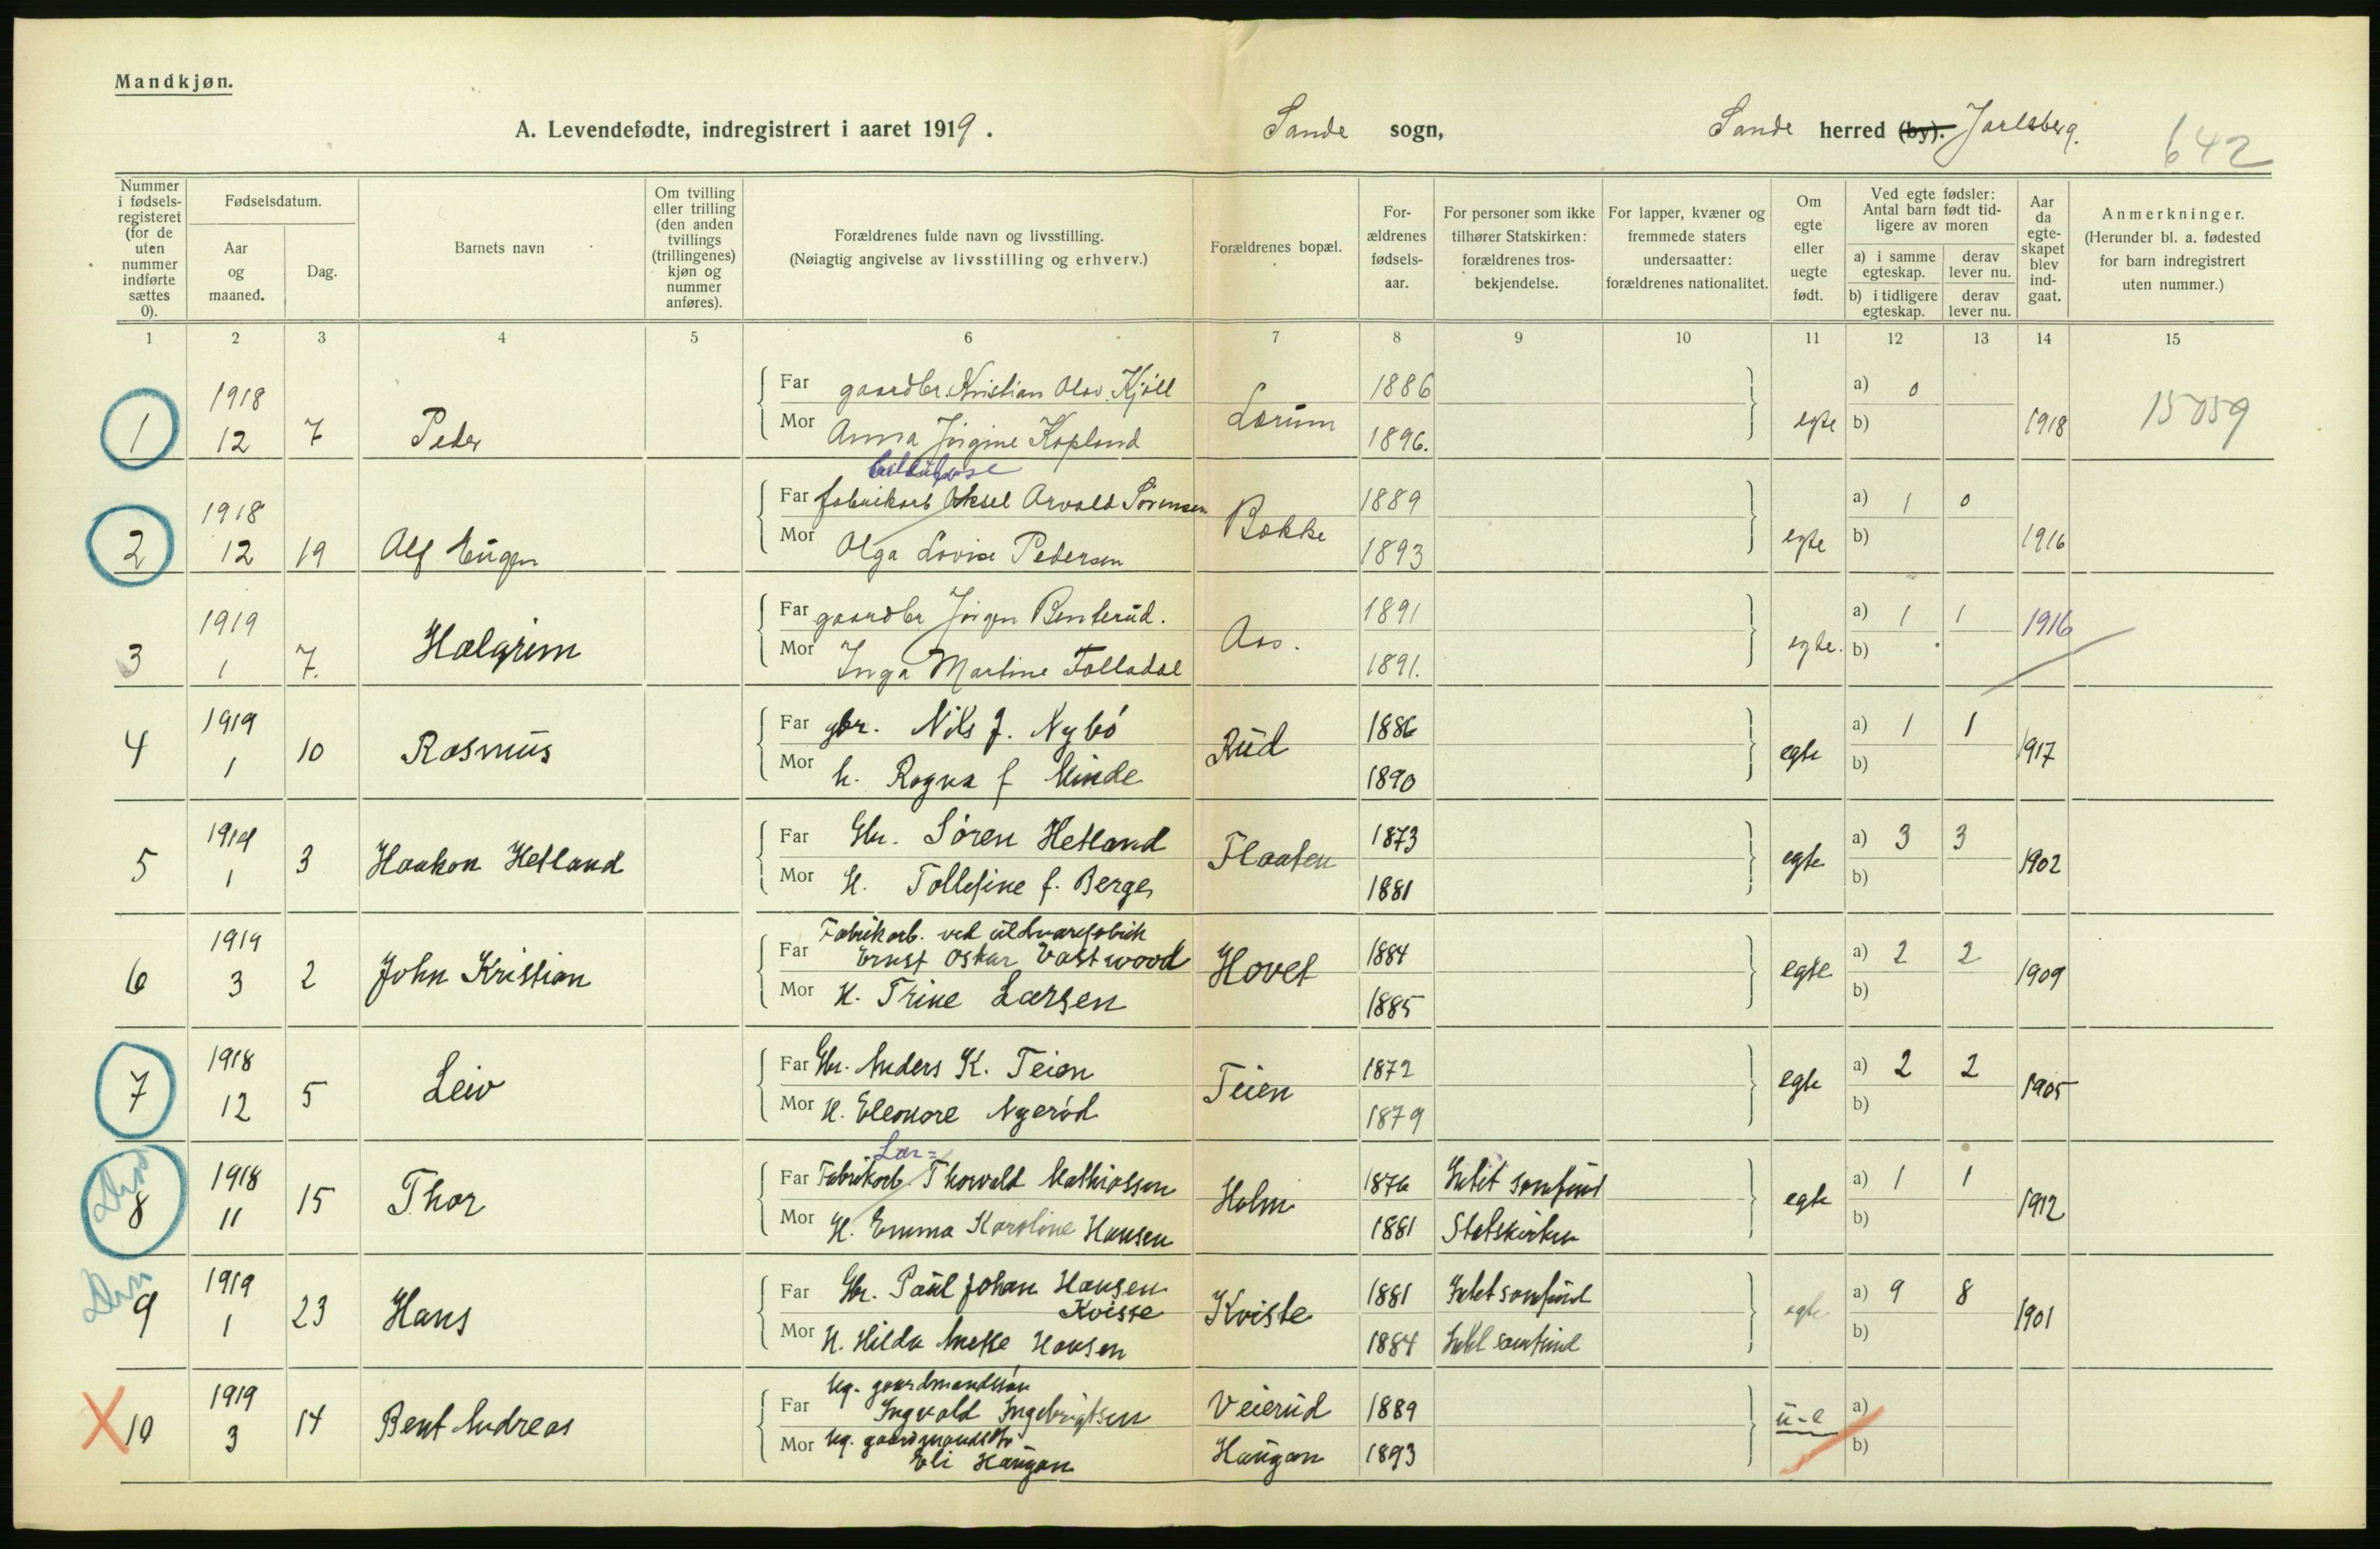 Mandkjøn.
A. Levendefødte, indregistrert i aaret 1919. Sande sogn, Sande herred (by). Jarlsberg.
642
Nummer i fødsels-registeret (for de uten nummer indførte sættes 0).
Fødselsdatum.
Aar og maaned.
Dag.
Barnets navn
Om tvilling eller trilling (den anden tvillings (trillingenes) kjøn og nummer anføres).
Forældrenes fulde navn og livsstilling.
(Nøiagtig angivelse av livsstilling og erhverv.)
Forældrenes bopæl.
For-ældrenes fødsels-aar.
For personer som ikke tilhører Statskirken: forældrenes tros-bekjendelse.
For lapper, kvæner og fremmede staters undersaatter: forældrenes nationalitet.
Om egte eller uegte født.
Ved egte fødsler: Antal barn født tid-ligere av moren
a) i samme egteskap.
derav lever nu.
b) i tidligere egteskap.
derav lever nu.
Aar da egte-skapet blev ind-gaat.
Anmerkninger.
(Herunder bl. a. fødested for barn indregistrert uten nummer.)
1 2 3 4 5 6 7 8 9 10 11 12 13 14 15
1918 Far gaardbr. Kristian Olav. Kjöll 1886 a) 0
1 12 7 Peder Mor Anna Jörgine Kopland Lørum 1896. egte b) 1918 15059
1918 Far fabrikarb Aksel Arvald Sörensen 1889 a) 1 0
2 12 19 Alf Eugen Mor Olga Lovise Pedersen Bakke 1893 egte b) 1916
1919 Far gaardbr Jörgen Benterud. 1891 a) 1 1 1916
3 1 7. Halgrim Mor Inga Martine Folladal Aas. 1891. egte. b)
1919 Far gbr. Nils J. Nybö 1886 a) 1 1
4 1 10 Rasmus Mor h. Ragna f Minde Rud 1890 egte b) 1917
1919 Far Gbr. Sören Hetland 1873 a) 3 3
5 1 3 Haakon Hetland Mor H. Tollefine f. Berge Flaaten 1881 egte b) 1902
Fabrikarb. ved uldvarefabrik
1919 Far Ernst Oskar Eastwood 1884 a) 2 2
6 3 2 John Kristian Mor H. Trine Larsen Hovet 1885 egte b) 1909
1918 Far Gbr. Anders K. Teien 1872 a) 2 2
7 12 5 Leiv Mor H. Eleonore Nyeröd Teien 1879 egte b) 1905
1918 Far Fabrikarb. Thorvald Mathiassen 1876 Intet samfund a) 1 1
8 11 15 Thor Mor H. Emma Karoline Hansen Holm 1881 Statskirken egte b) 1912
1919 Far Gbr. Paul Johan Hansen 1881 Intet samfund a) 9 8
Kviste
9 1 23 Hans Mor H. Hilda Anette Hansen Kviste 1884 Intet samfund egte b) 1901
Ug. gaardmandssön
1919 Far Ingvald Ingebrigtsen Veierud 1889 a)
X 10 3 14 Bent Andreas Mor Ug. gaardmandsdtr Haugan 1893 u-e b)
Eli Haugan